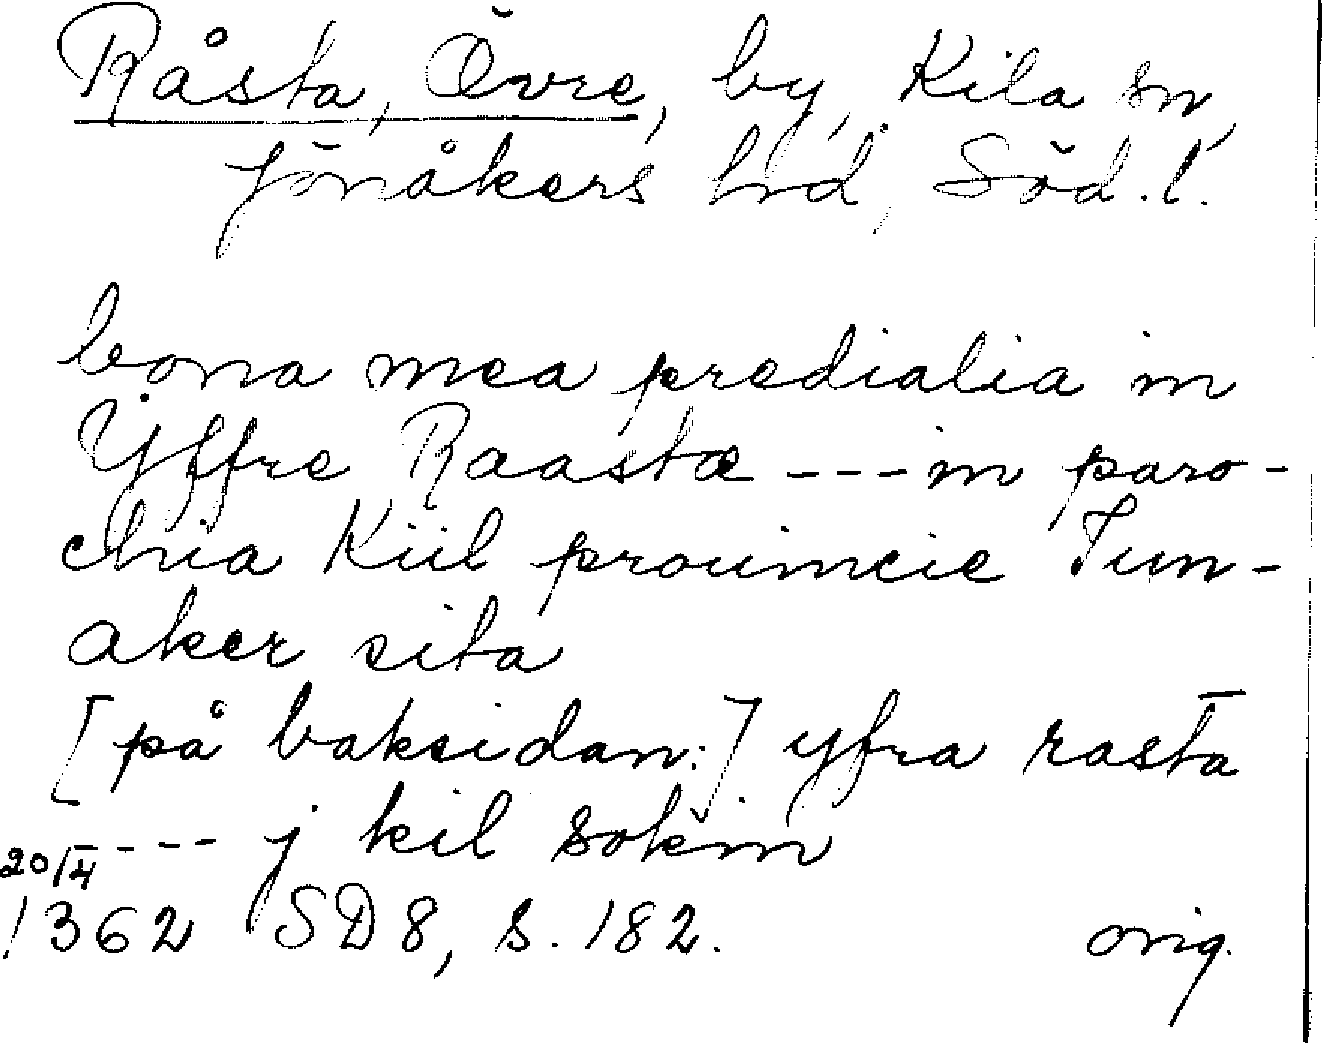 Råsta, Övre, by, Kila sn,
Jönåkers hd, Söd. l.
bona mea predialia in
Yffre Raastæ --- in paro-
chia Kiil prouincie Iun-
aker sita
[på baksidan:] yfra rasta
---- j kil sokin
20/4
1362 SD 8, s. 182. orig.